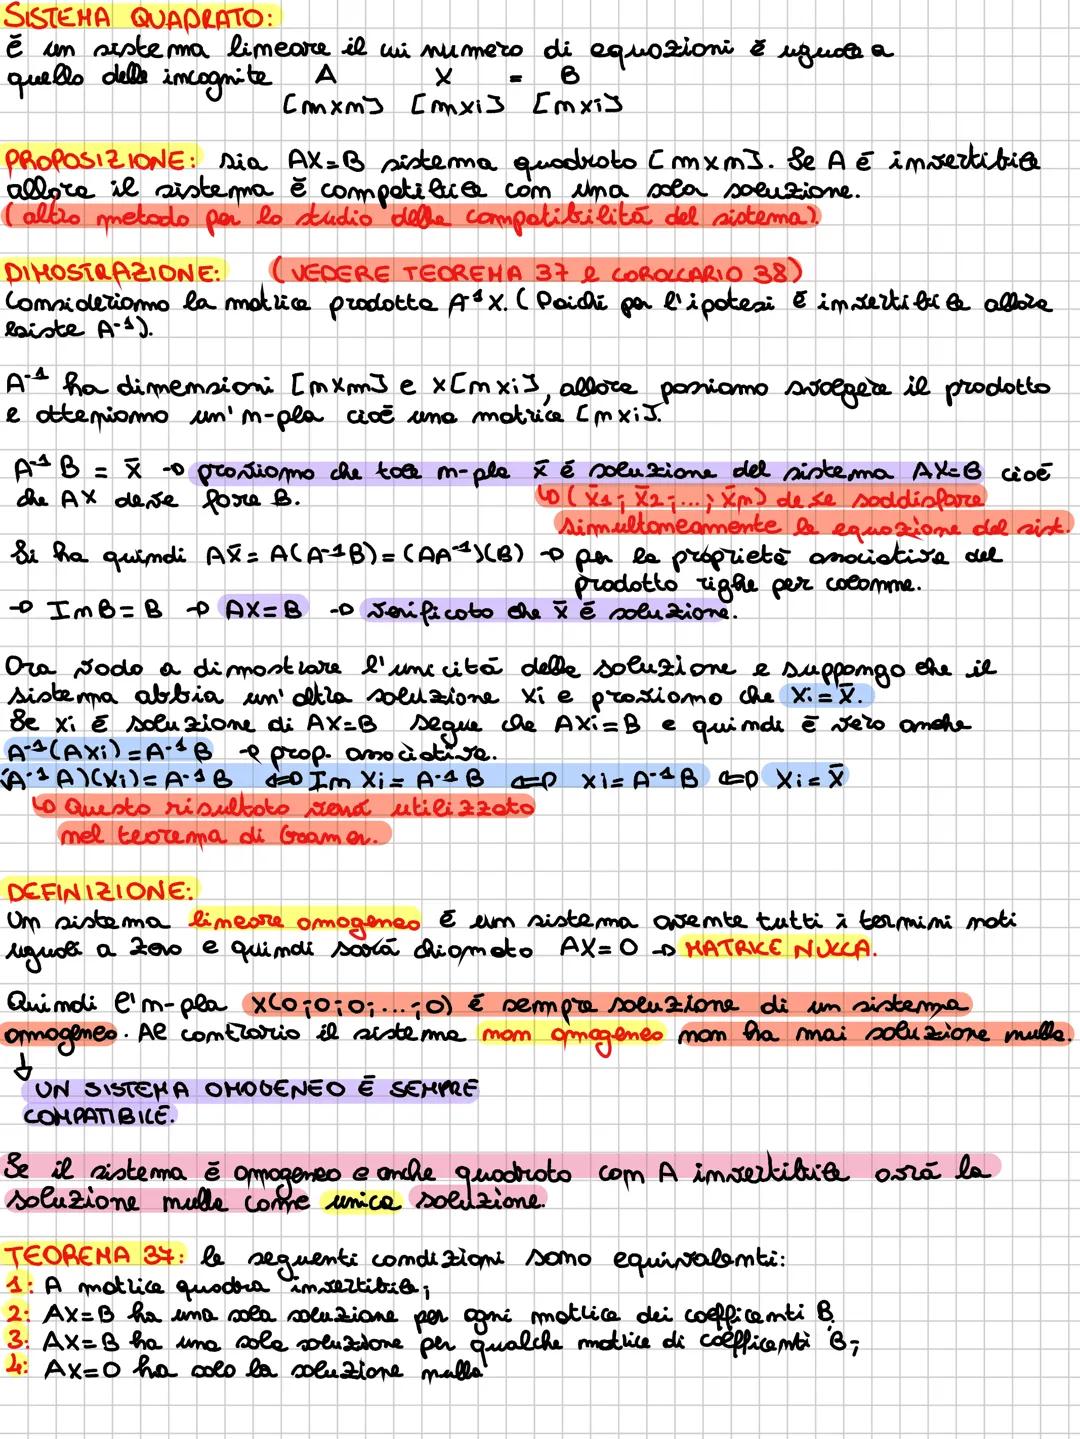 SISTEMA QUADRATO:
é un sistema lineare il cui numero di equazioni é uguale a
quello delle incognite A X = B
[nxn] [nx1] [nx1]
PROPOSIZIONE: sia AX=B sistema quadrato [nxn]. Se A é invertibile
allora il sistema é compatibile con una sola soluzione.
(altro metodo per lo studio della compatibilitá del sistema)
DIMOSTRAZIONE: (VEDERE TEOREMA 37 e COROLLARIO 38)
Consideriamo la matrice prodotto A⁻¹X. (Poiché per l'ipotesi é invertibile allora
esiste A⁻¹).
A⁻¹ ha dimensioni [nxn] e X[nx1], allora possiamo svolgere il prodotto
e otteniamo un'n-pla cioé una matrice [nx1].
A⁻¹B = x̄ → proviamo che tale n-pla x̄ é soluzione del sistema AX=B cioé
che AX deve fare B.
↳ (x̄1; x̄2;...; x̄n) deve soddisfare
simultaneamente le equazione del sist.
Si ha quindi Ax̄ = A(A⁻¹B) = (AA⁻¹)(B) → per la proprietá associativa del
prodotto righe per colonne.
→ InB = B → AX=B → verificato che x̄ é soluzione.
Ora vado a dimostrare l'unicitá della soluzione e suppongo che il
sistema abbia un'altra soluzione Xi e proviamo che Xi = x̄.
Se Xi é soluzione di AX=B segue che AXi=B e quindi é vero anche
A⁻¹(AXi) = A⁻¹B → prop. associativa.
(A⁻¹A)(Xi) = A⁻¹B ⇔ In Xi = A⁻¹B ⇔ Xi = A⁻¹B ⇔ Xi = x̄
↳ Questo risultato verrá utilizzato
nel teorema di Cramer.
DEFINIZIONE:
Un sistema lineare omogeneo é un sistema avente tutti i termini noti
uguali a zero e quindi sará chiamato AX=0 → MATRICE NULLA.
Quindi l'n-pla X(0;0;0;...;0) é sempre soluzione di un sistema
omogeneo. Al contrario il sistema non omogeneo non ha mai soluzione nulla.
↓
UN SISTEMA OMOGENEO É SEMPRE
COMPATIBILE.
Se il sistema é omogeneo e anche quadrato con A invertibile avrá la
soluzione nulla come unica soluzione.
TEOREMA 37: le seguenti condizioni sono equivalenti:
1: A matrice quadra invertibile;
2: AX=B ha una sola soluzione per ogni matrice dei cofficenti B
3: AX=B ha una sola soluzione per qualche matrice di cofficenti B;
4: AX=0 ha solo la soluzione nulla